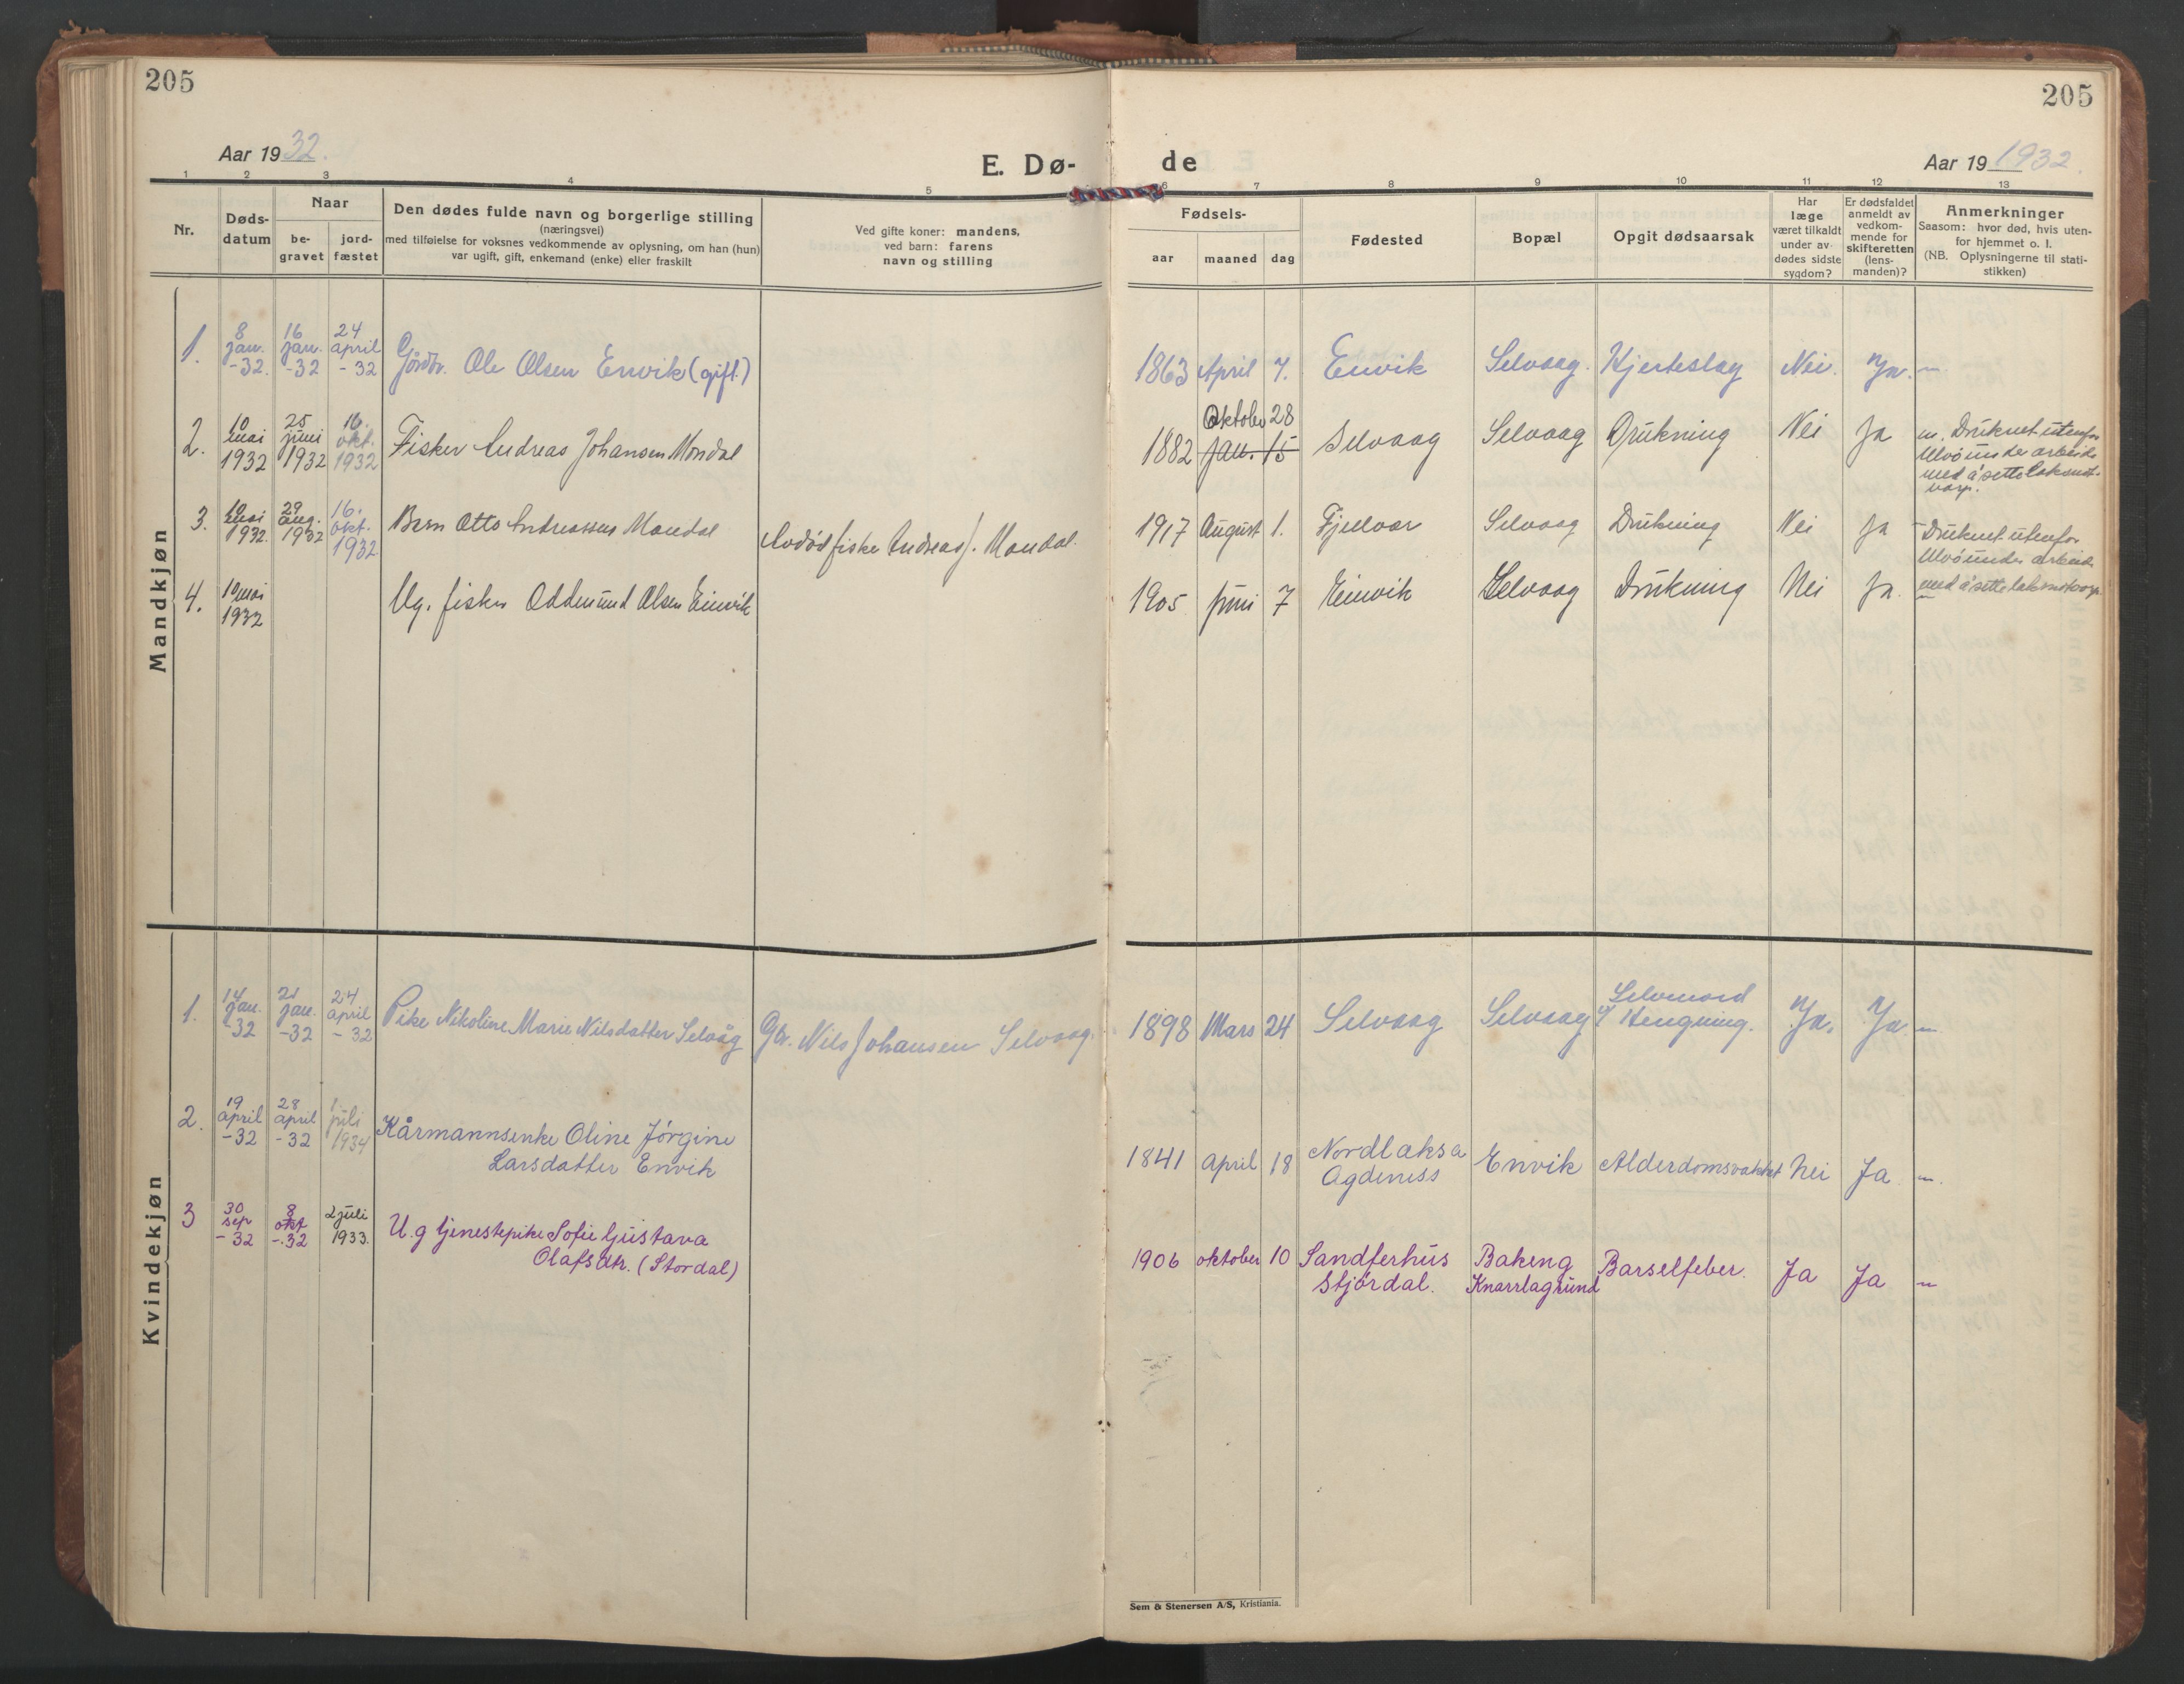 205
205
Aar 1932.
E. Dø-
de
Aar 19 1932.
1 2 3 4 5 6 7 8 9 10 11 12 13
Nr.
Døds-
datum
Naar
be-
gravet
jord-
fæstet
Den dødes fulde navn og borgerlige stilling
(næringsvei)
med tilføielse for voksnes vedkommende av oplysning, om han (hun)
var ugift, gift, enkemand (enke) eller fraskilt
Ved gifte koner: mandens,
ved barn: farens
navn og stilling
Fødsels-
aar maaned dag
Fødested
Bopæl
Opgit dødsaarsak
Har
læge
været tilkaldt
under av-
dødes sidste
sygdom?
Er dødsfaldet
anmeldt av
vedkom-
mende for
skifteretten
(lens-
manden)?
Anmerkninger
Saasom: hvor død, hvis uten-
for hjemmet o. l.
(NB. Oplysningerne til stati-
stikken)
Mandkjøn
1. 8 jan. -32. 16 jan. -32 24 april -32 Gårdbr. Ole Olsen Envik (gift.) 1863 April 7. Envik Selvaag. Hjerteslag Nei. Ja. —
2. 10 mai 1932 25 juni 1932 16. okt. 1932 Fisker Andreas Johansen Mondal 1882 Oktober 28 jan. 15 Selvaag Selvaag Drukning Nei Ja
Druknet utenfor
Ulvö under arbeide
med å sette laksnot-
varp.
3. 10 mai 1932. 29 aug. 1932 16. okt. 1932 Barn Otto Andreassen Mondal Avdöd fisker Andreas J. Mondal. 1917 August 1. Fjellvær Selvaag Drukning Nei Ja
Druknet utenfor
Ulvö under arbeide
med å sette laksnotvarp.
4. 10 mai 1932 Ug. fisker Oddmund Olsen Einvik 1905 juni 7 Einvik Selvaag Drukning Nei Ja
Kvindekjøn
1. 14 jan. -32 21 jan. -32 24 april -32 Pike Nikoline Marie Nilsdatter Selvåg Gbr. Nils Johansen Selvaag. 1898 Mars 24 Selvaag Selvaag Selvmord v/ Hengning. Ja. Ja —
2. 19 april -32 28 april -32 1. juli 1934 Kårmannsenke Oline Jörgine
Larsdatter Envik 1841 april 18 Nordlaksa
Agdeness Envik Alderdomsvakhet Nei Ja —
3 30 sep -32 8 okt -32 2 juli 1933. U.g tjenestepike Sofie Gustava
Olafsdtr. (Stordal) 1906 oktober 10 Sandferhus
Stjördal. Bakeng
Knarrlagsund Barselfeber. Ja Ja —
Sem & Stenersen A/S, Kristiania.